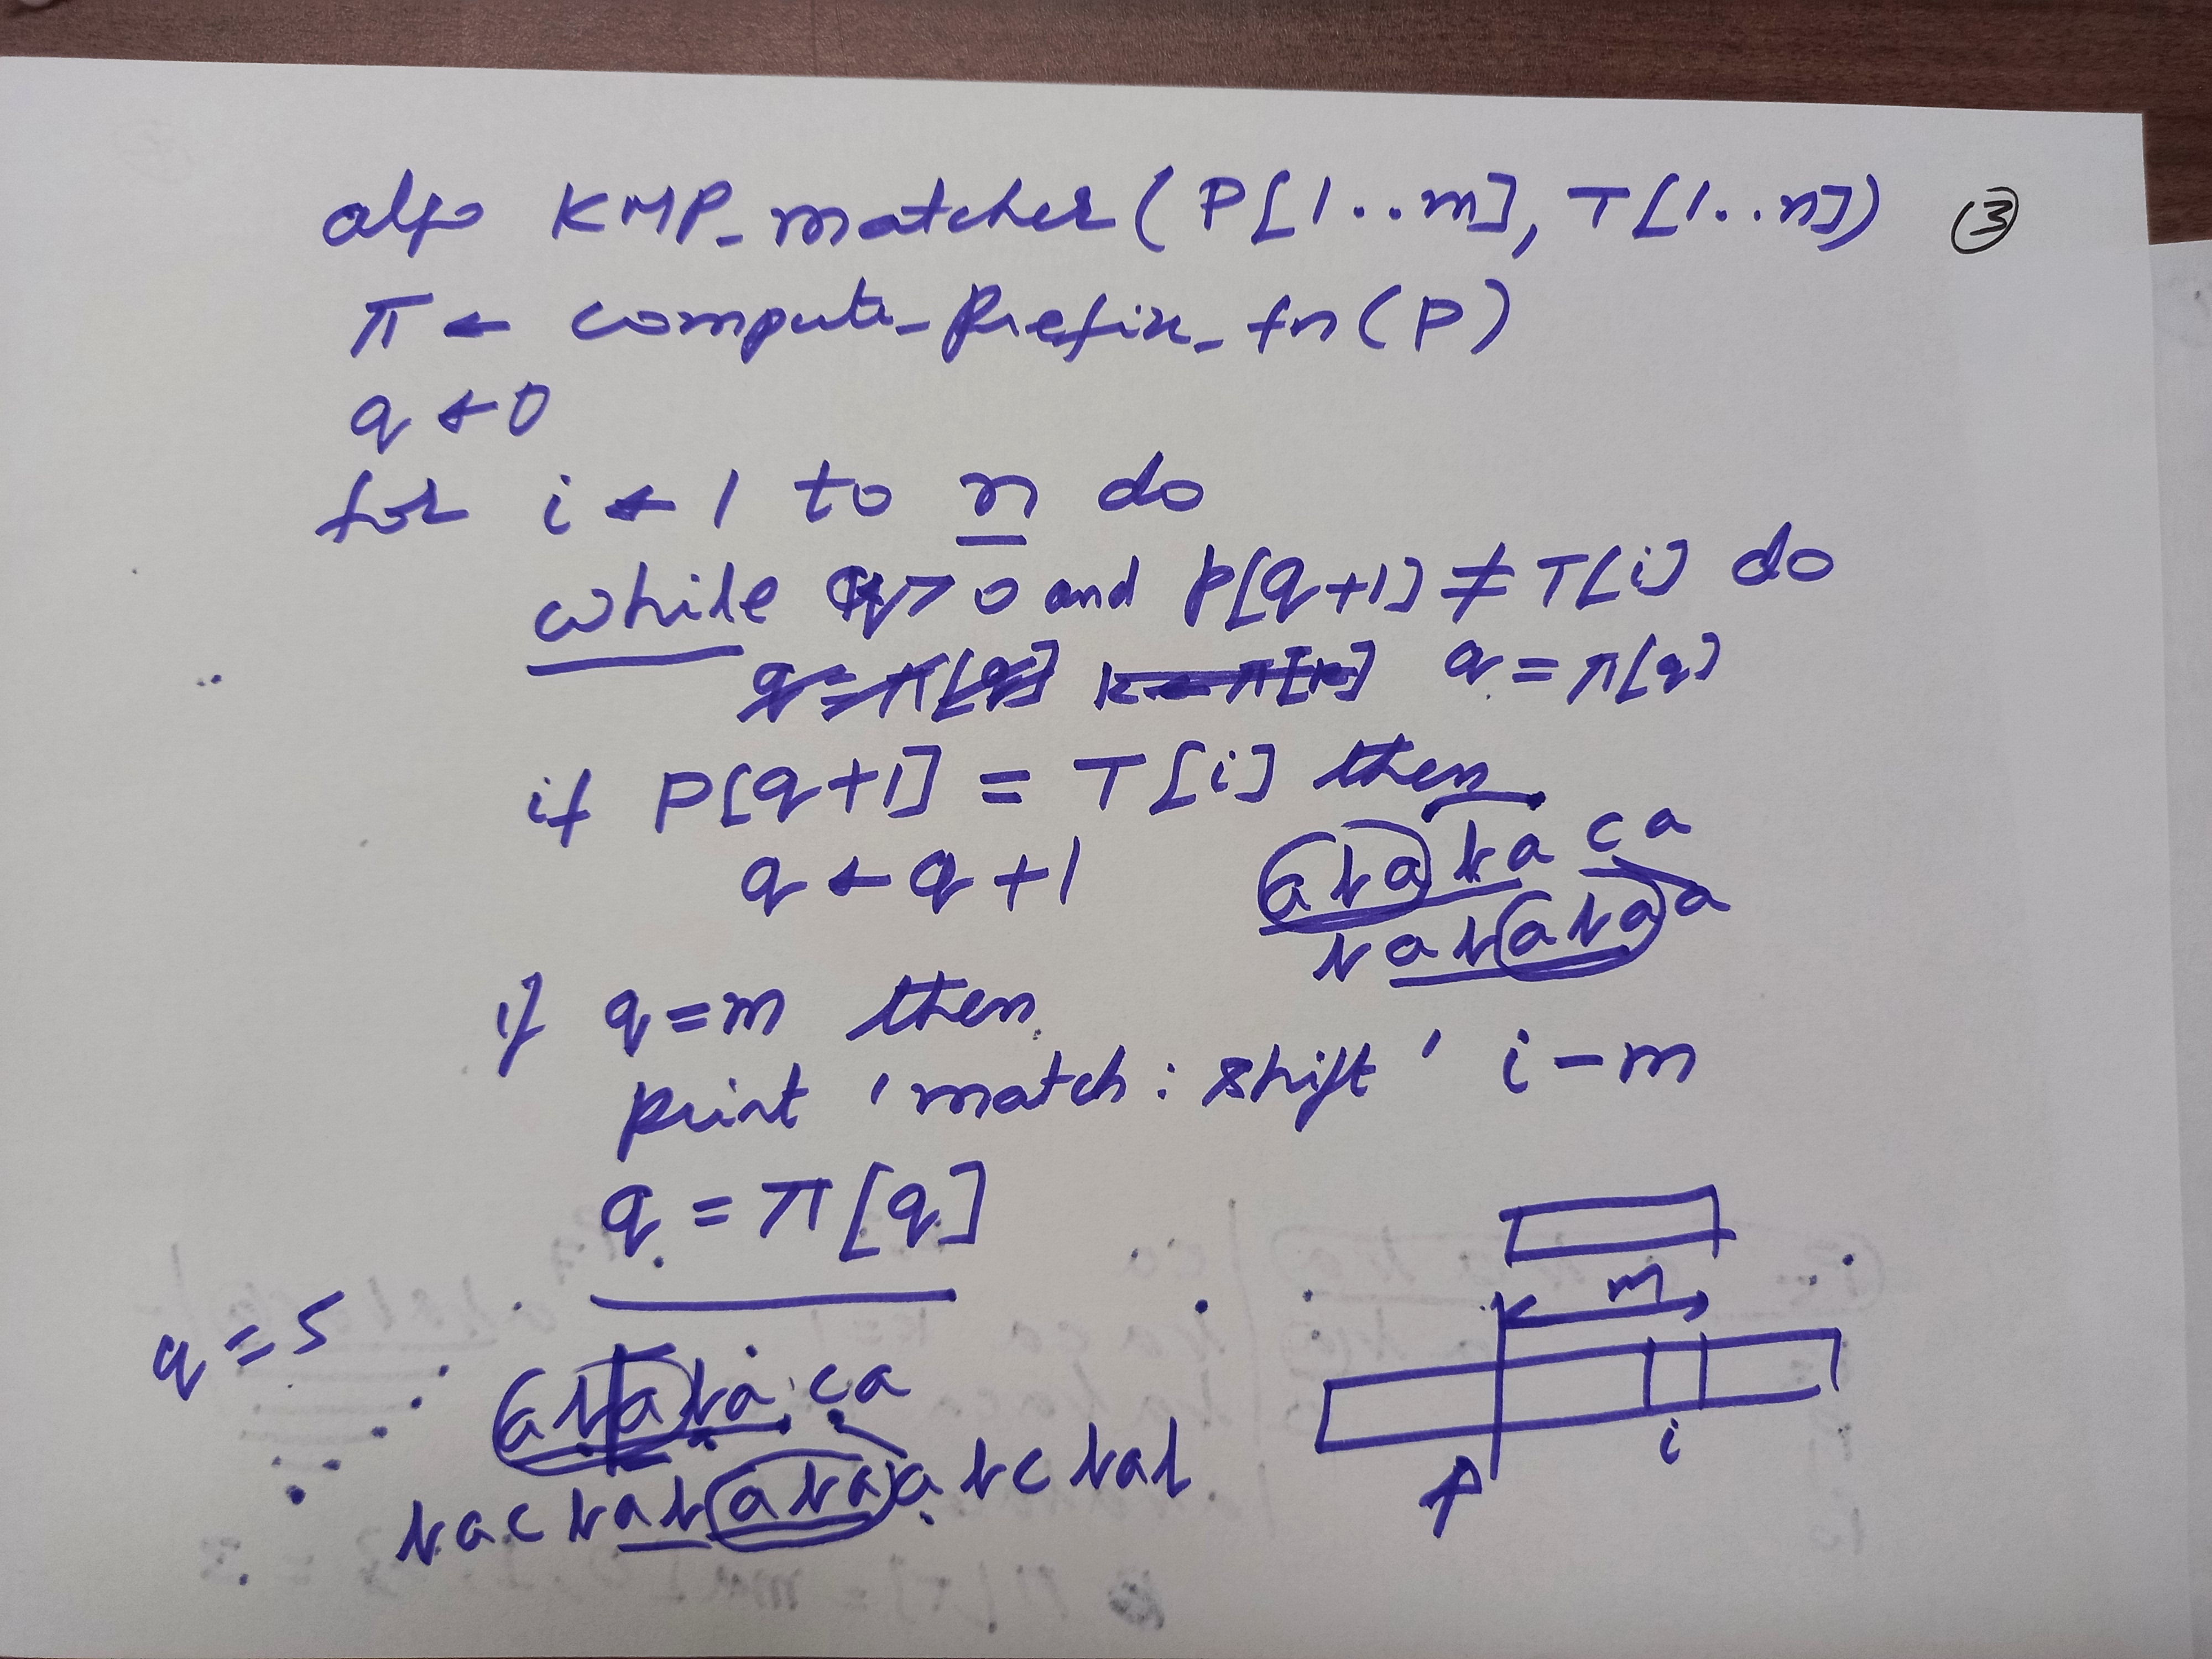 algo KMP-matcher(P[1...m], T[1...n]) ③
π ← compute-prefix-fn(P)
q ← 0
for i ← 1 to n do
while q > 0 and P[q+1] ≠ T[i] do
q = π[q]
if P[q+1] = T[i] then
q ← q + 1
ababaca
bababaa
if q = m then
print 'match: shift', i - m
q = π[q]
m
i
q = 5
ababaca
bacbababaabcbab